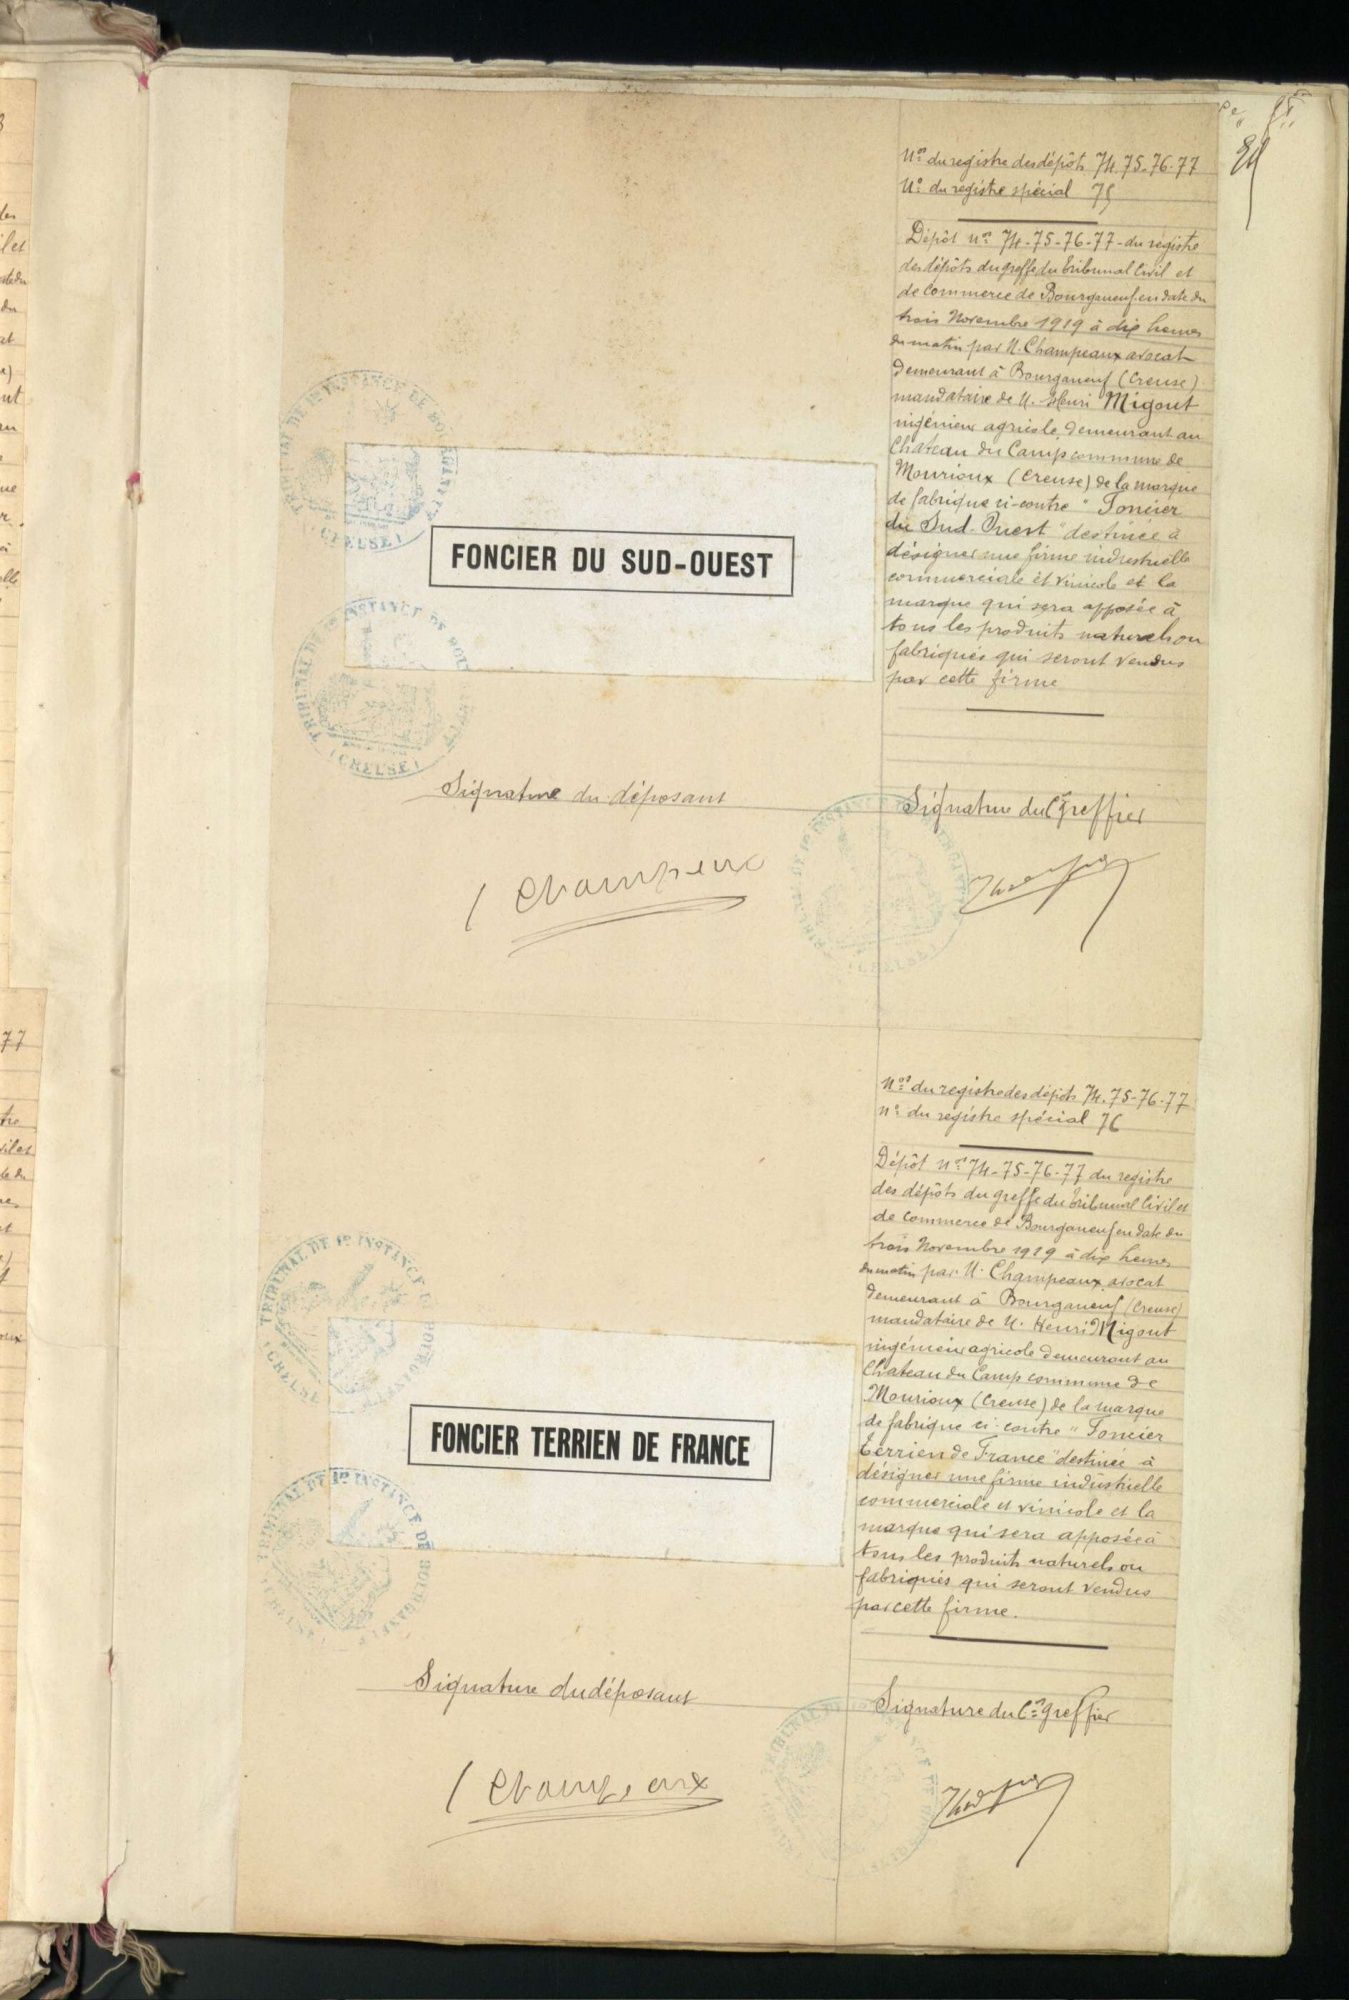 Nos du registre des dépôts 74.75-76-77
No du registre spécial 75
Dépôt nos 74-75-76-77-du registre
des dépôts du greffe du Tribunal Civil et
de Commerce de Bourganeuf en date du
trois Novembre 1919 à dix heures
du matin par M. Champeaux avocat
demeurant à Bourganeuf (Creuse)
mandataire de M. Henri Migout
ingénieur agricole, demeurant au
Château du Camp commune de
Mourioux (Creuse) de la marque
de fabrique ci-contre "Foncier
du Sud-Ouest" destinée à
désigner une firme industrielle
commerciale et vinicole et la
marque qui sera apposée à
tous les produits naturels ou
fabriqués qui seront vendus
par cette firme
FONCIER DU SUD-OUEST
TRIBUNAL DE 1re INSTANCE DE BOURGANEUF
(CREUSE)
Signature du déposant
Signature du Cs Greffier
Champeaux
Nos du registre des dépôts 74.75-76-77
no du registre spécial 76
Dépôt nos 74-75-76-77 du registre
des dépôts du greffe du Tribunal Civil et
de Commerce de Bourganeuf en date du
trois Novembre 1919 à dix heures
du matin par M. Champeaux avocat
demeurant à Bourganeuf (Creuse)
mandataire de M. Henri Migout
ingénieur agricole demeurant au
Château du Camp commune de
Mourioux (Creuse) de la marque
de fabrique ci-contre "Foncier
Terrien de France" destinée à
désigner une firme industrielle
commerciale et vinicole et la
marque qui sera apposée à
tous les produits naturels ou
fabriqués qui seront vendus
par cette firme.
FONCIER TERRIEN DE FRANCE
TRIBUNAL DE 1re INSTANCE DE BOURGANEUF
(CREUSE)
Signature du déposant
Signature du Cs greffier
Champeaux